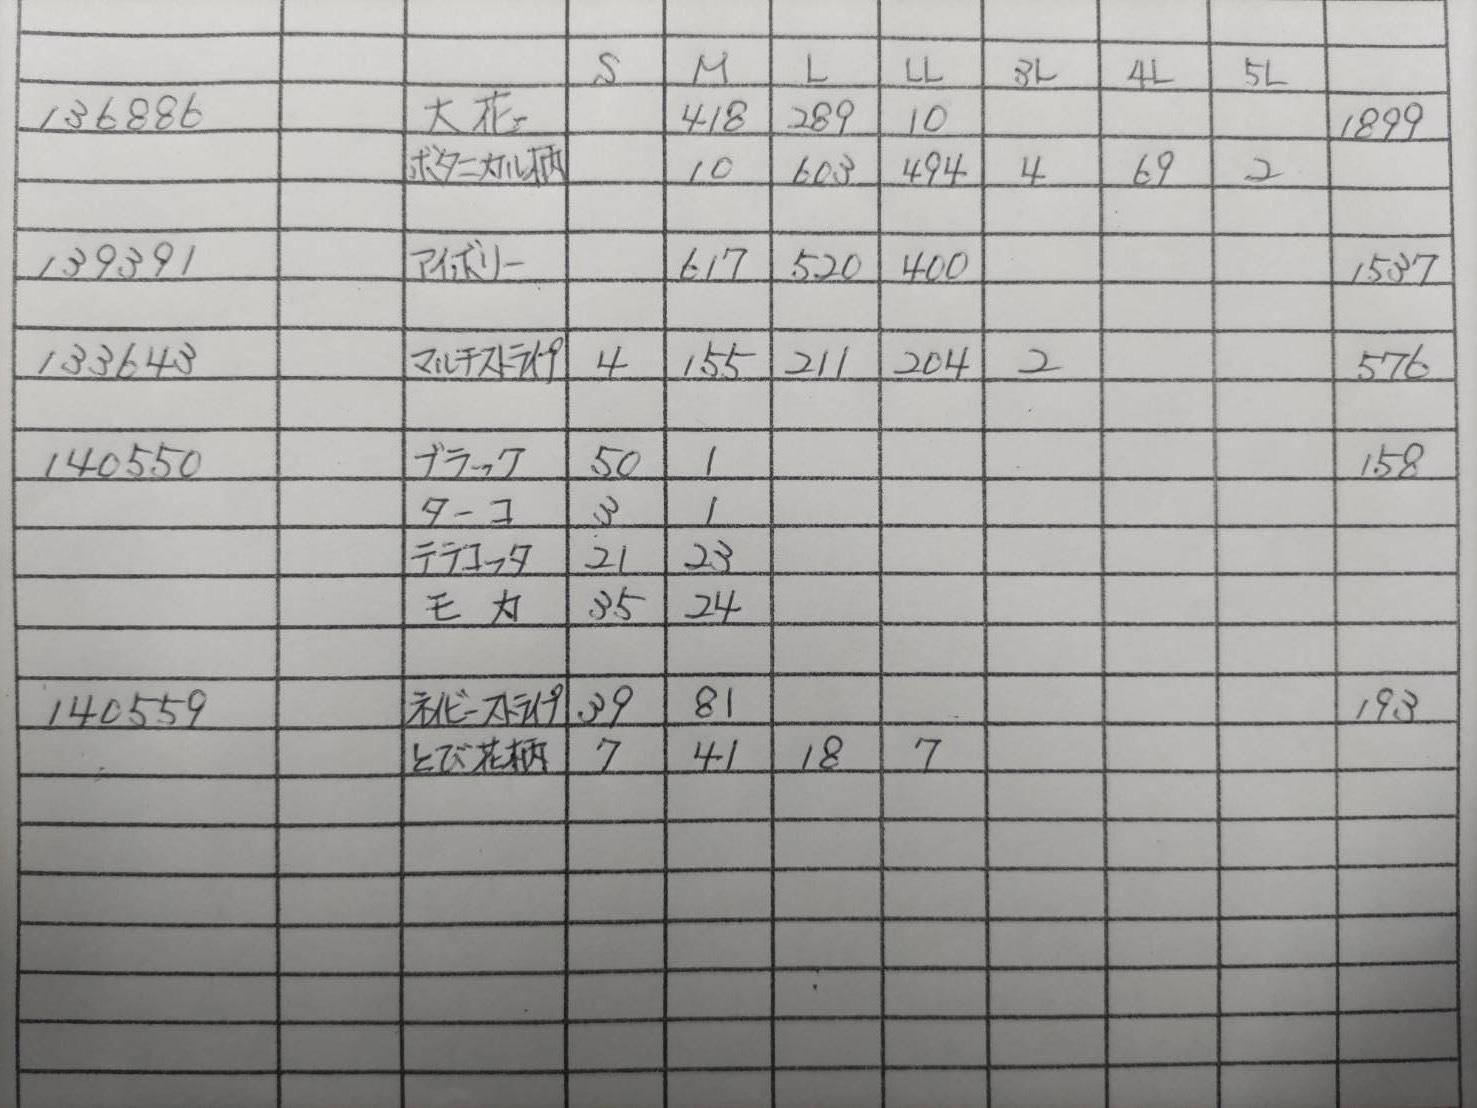 S M L LL 3L 4L 5L
136886 大花 418 289 10 1899
ボタニカル柄 10 603 494 4 69 2
139391 アイボリー 617 520 400 1537
133643 マルチストライプ 4 155 211 204 2 576
140550 ブラック 50 1 158
ターコ 3 1
テラコッタ 21 23
モカ 35 24
140559 ネイビーストライプ 39 81 193
とび花柄 7 41 18 7